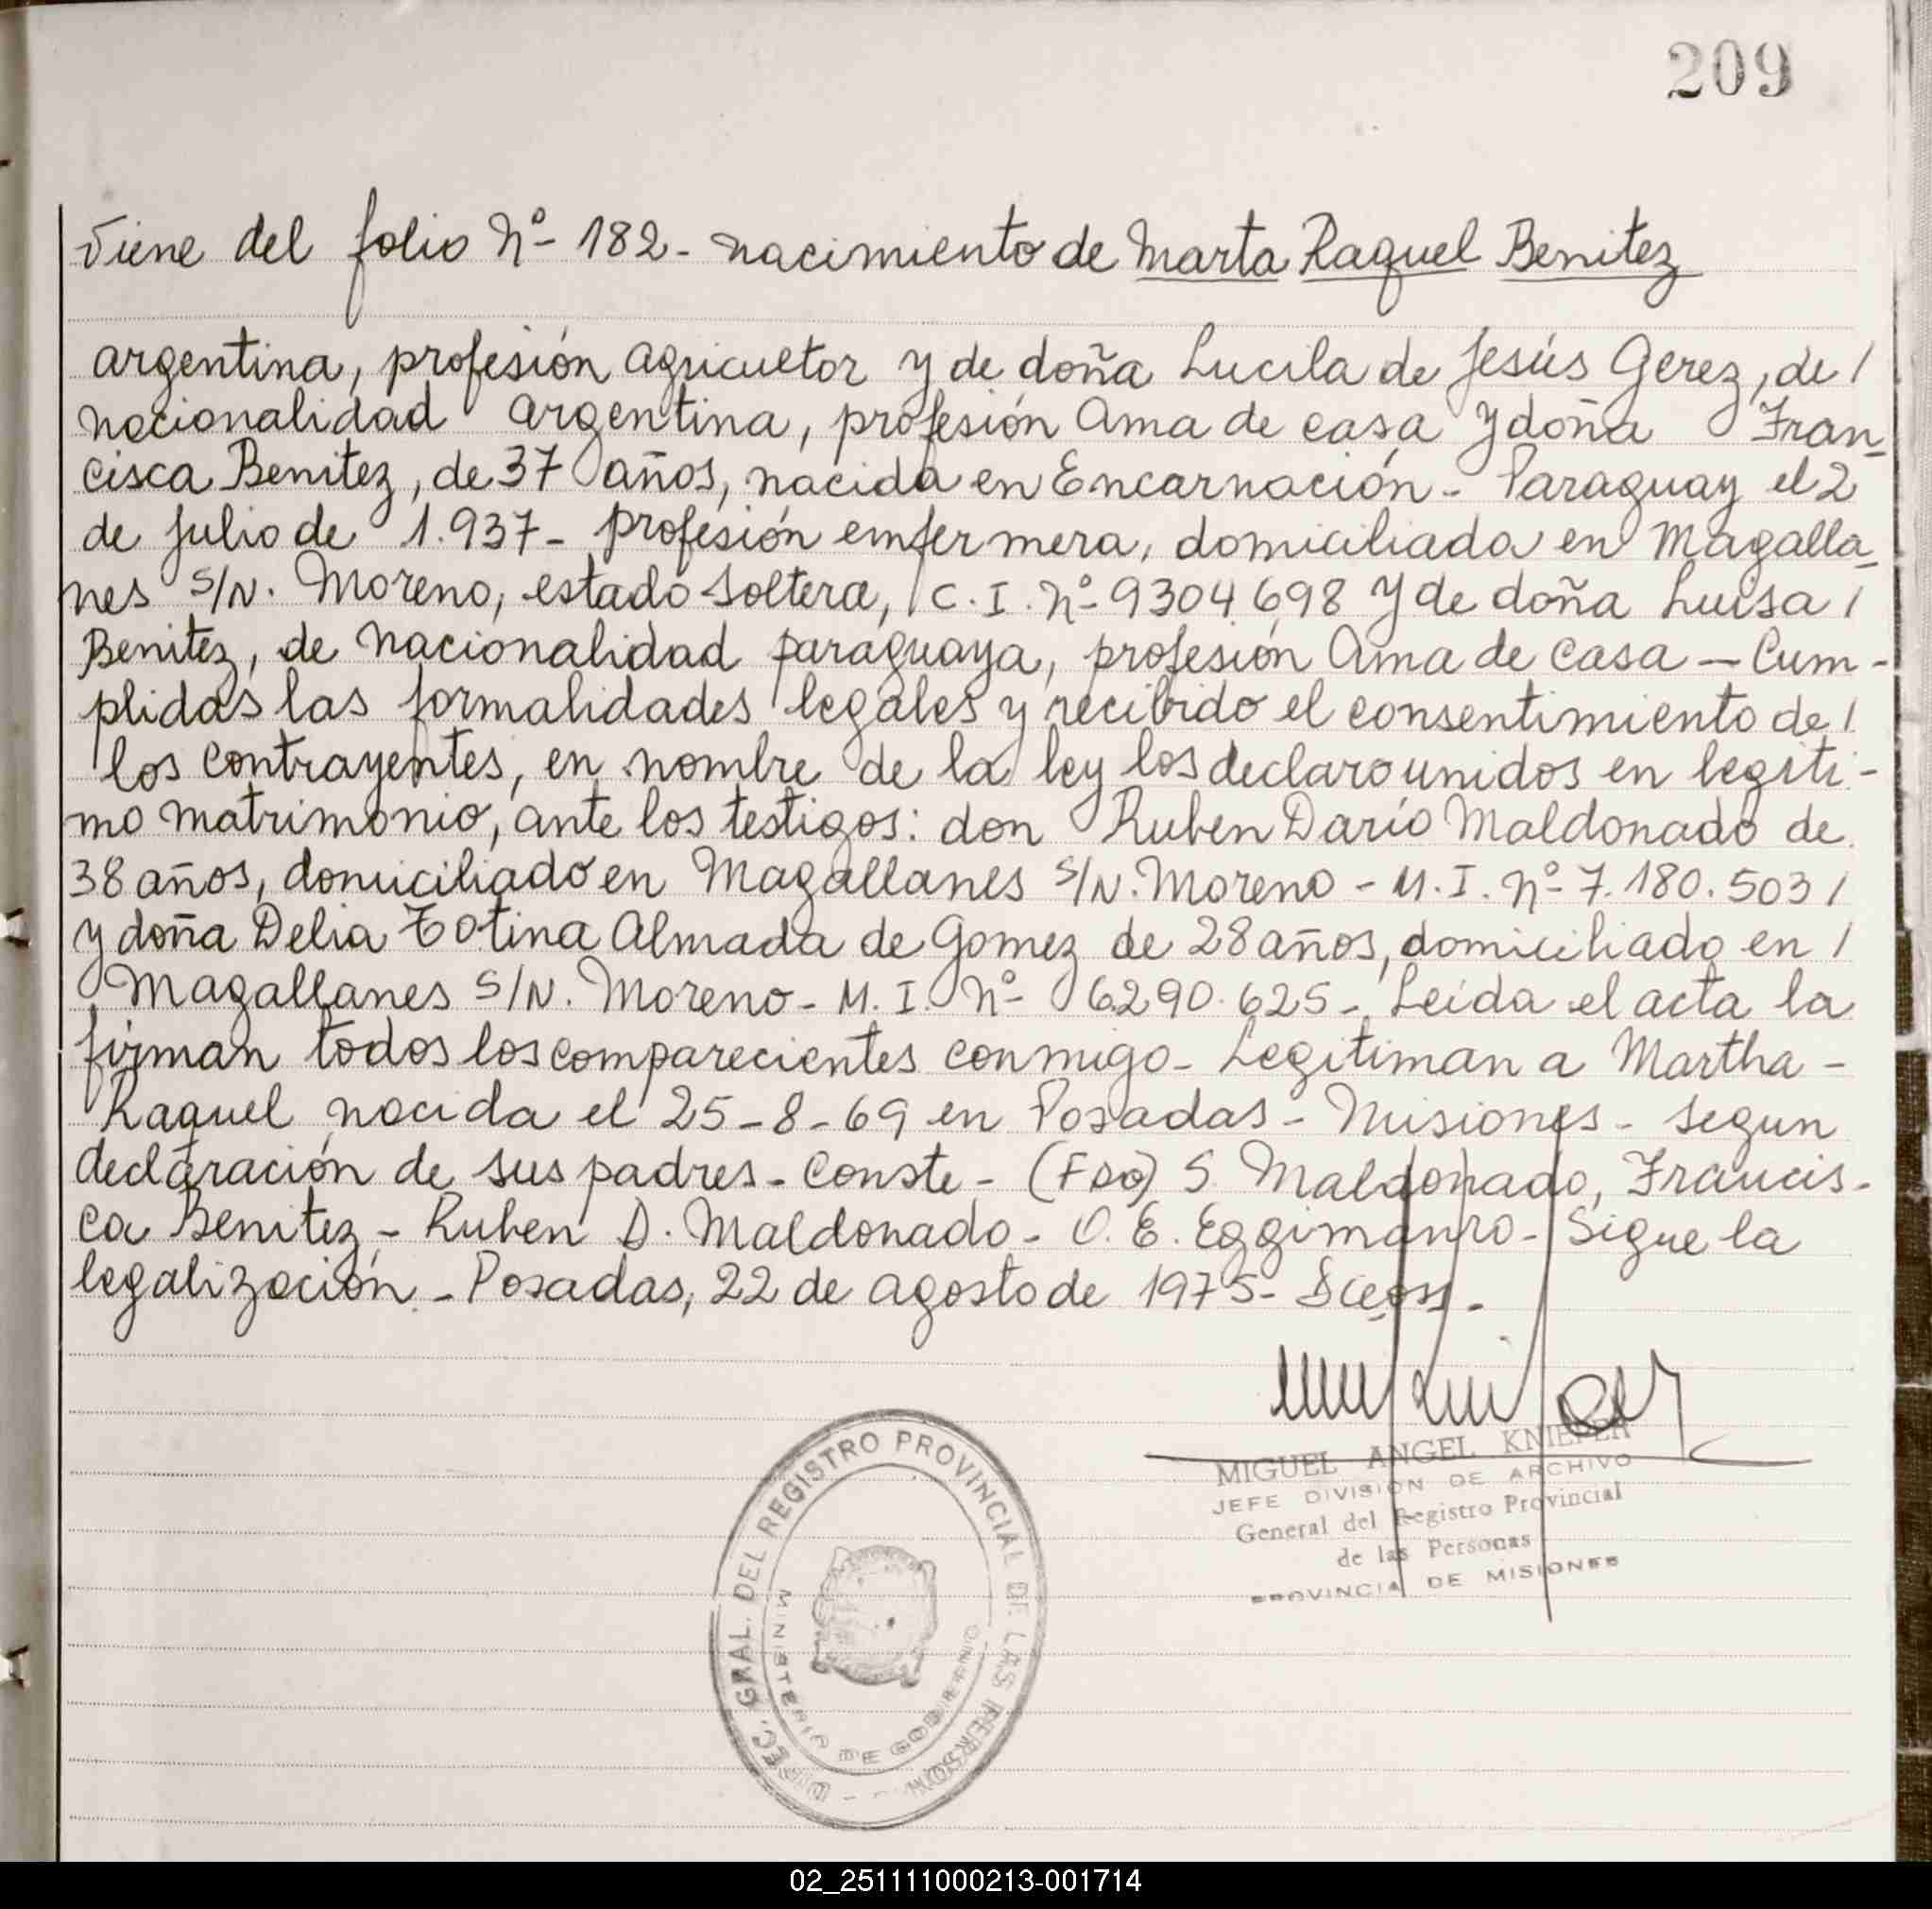 209
Viene del folio Nº 182 - nacimiento de Marta Raquel Benitez
argentina, profesión agricultor y de doña Lucila de Jesús Gerez, de /
nacionalidad argentina, profesión Ama de casa y doña Fran-
cisca Benitez, de 37 años, nacida en Encarnación - Paraguay el 2
de Julio de 1.937 - profesión enfermera, domiciliada en Magalla-
nes S/N. Moreno, estado soltera, C.I. Nº 9304698 y de doña Luisa /
Benitez, de nacionalidad paraguaya, profesión Ama de casa - Cum-
plidas las formalidades legales y recibido el consentimiento de /
los contrayentes, en nombre de la ley los declaro unidos en legiti-
mo matrimonio, ante los testigos: don Ruben Darío Maldonado de
38 años, domiciliado en Magallanes S/N. Moreno - M.I. Nº 7.180.503 /
y doña Delia Totina Almada de Gomez de 28 años, domiciliado en /
Magallanes S/N. Moreno - M.I. Nº 6290.625 - Leida el acta la
firman todos los comparecientes conmigo - Legitiman a Martha -
Raquel nacida el 25-8-69 en Posadas - Misiones - segun
declaración de sus padres - Conste - (Fdo) S. Maldonado, Francis-
ca Benitez - Ruben D. Maldonado - O. E. Eggimann - Sigue la
legalización - Posadas, 22 de agosto de 1975 -
MIGUEL ANGEL KNIEPER
JEFE DIVISION DE ARCHIVO
General del Registro Provincial
de las Personas
PROVINCIA DE MISIONES
DIREC. GRAL. DEL REGISTRO PROVINCIAL DE LAS PERSONAS
MINISTERIO DE GOBIERNO
02_251111000213-001714